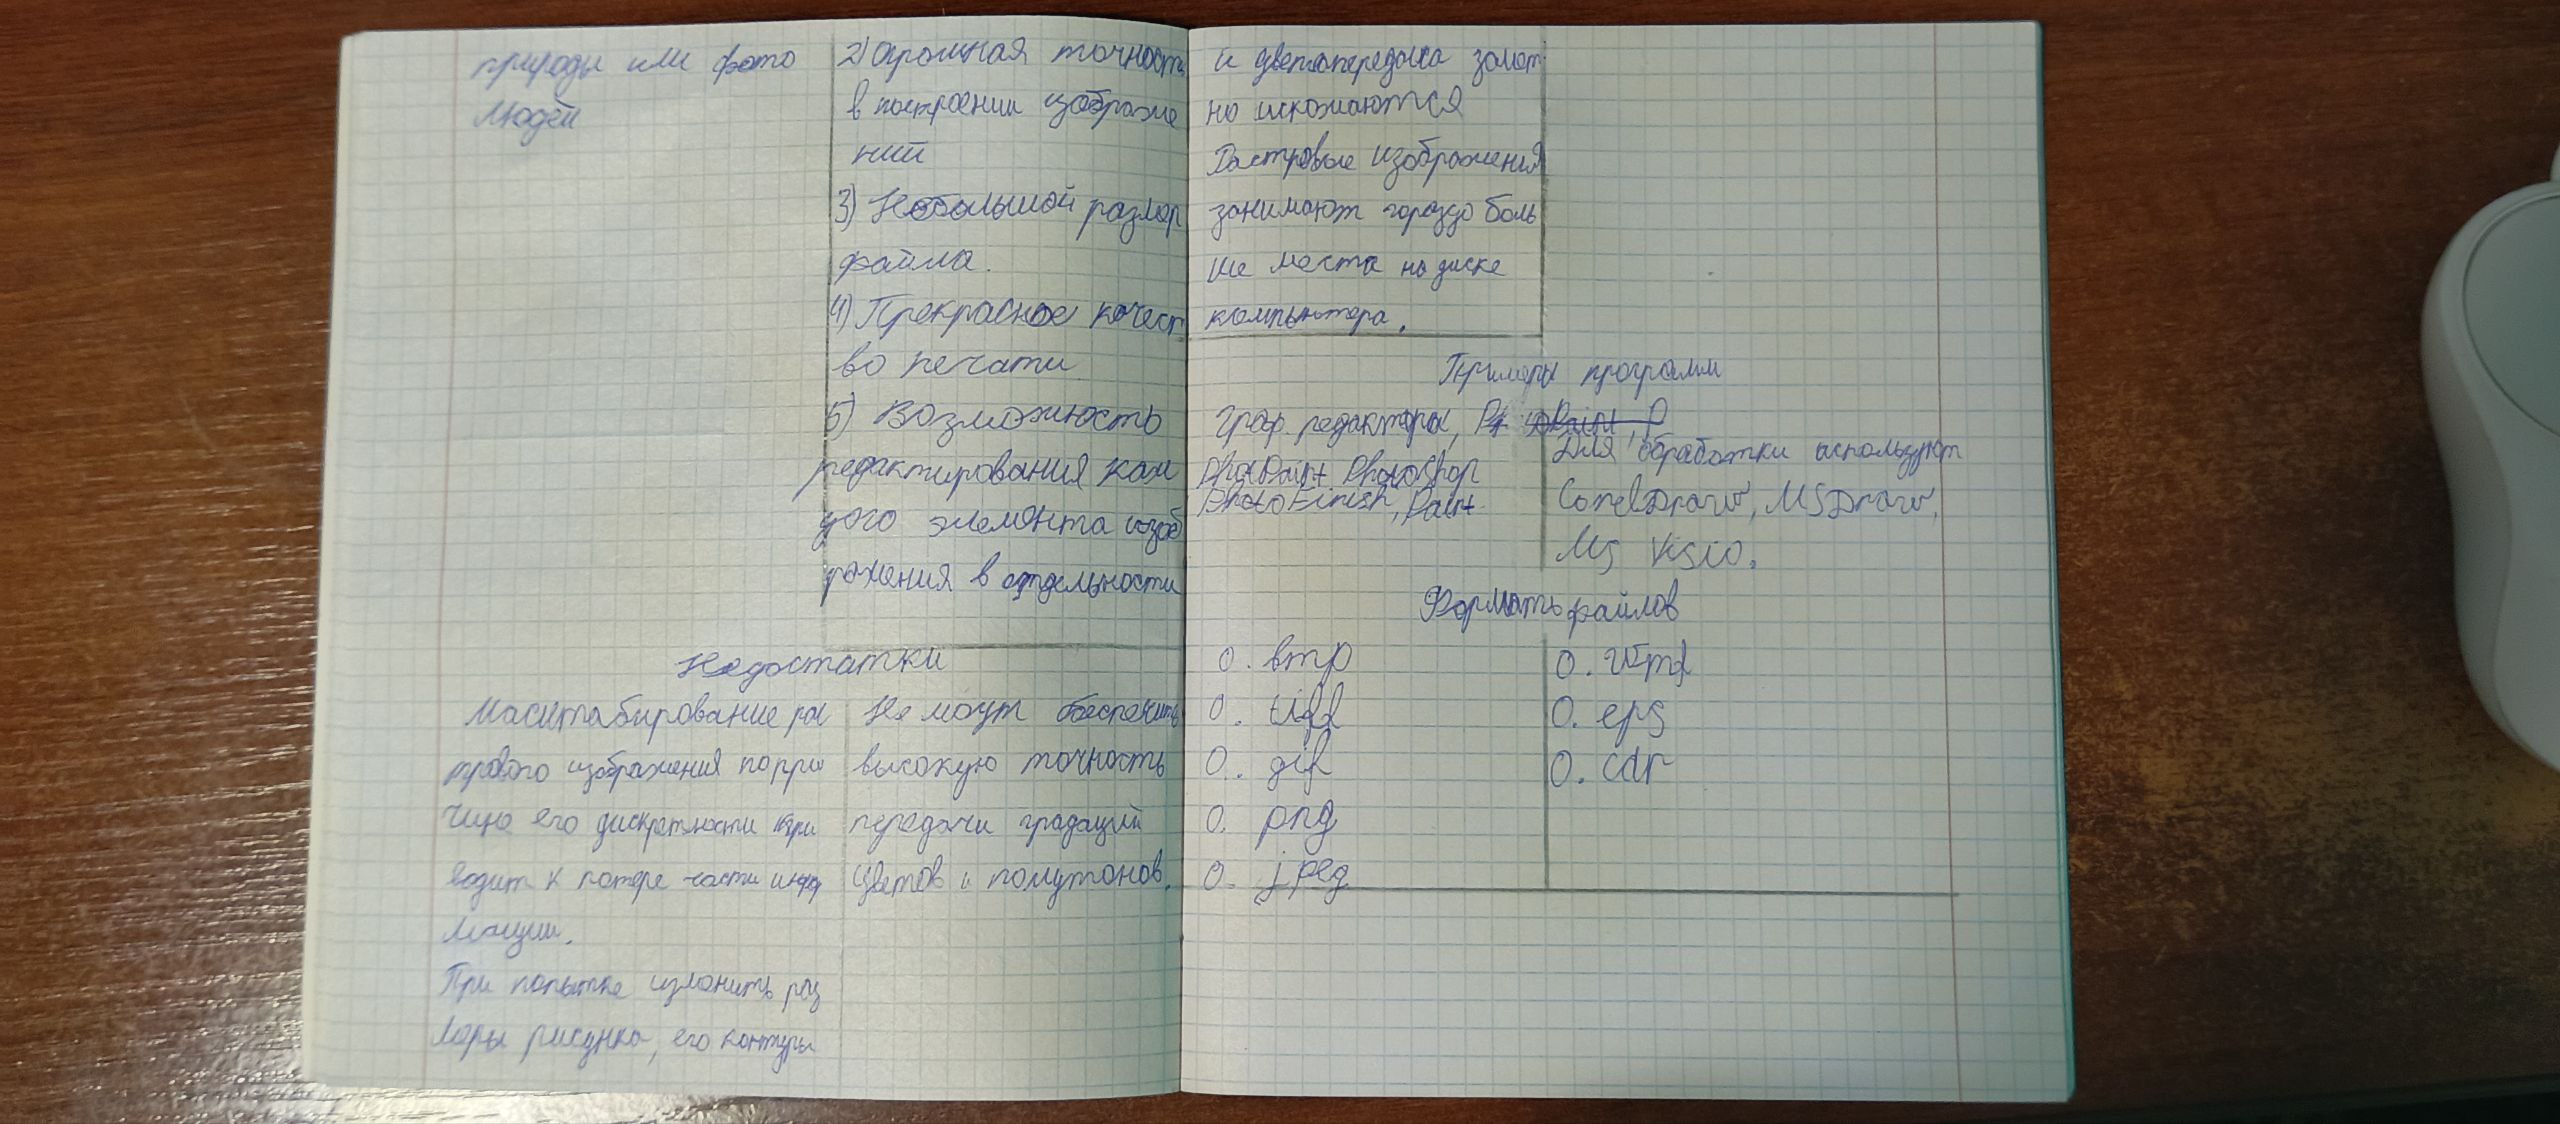 природы или фото
людей
2) Огромная точность
в построении изображе
ний
3) Небольшой размер
файла.
4) Прекрасное качест
во печати
5) Возможность
редактирования каж
дого элемента изоб
ражения в отдельности
Недостатки
Масштабирование рас
трового изображения по при
чине его дискретности при
водит к потере части инфор
мации.
При попытке изменить раз
меры рисунка, его контуры
Не могут обеспечить
высокую точность
передачи градаций
цветов и полутонов.
и цветопередача замет
но искажаются
Растровые изображения
занимают гораздо боль
ше места на диске
компьютера.
Примеры программ
Граф. редакторы,
PhotPaint PhotoShop
PhotoFinish, Paint
Для обработки используют
CorelDraw, MSDraw,
MS Visio.
Форматы файлов
О. bmp
О. tiff
О. gif
О. png
О. jpeg
О. wmf
О. eps
О. cdr